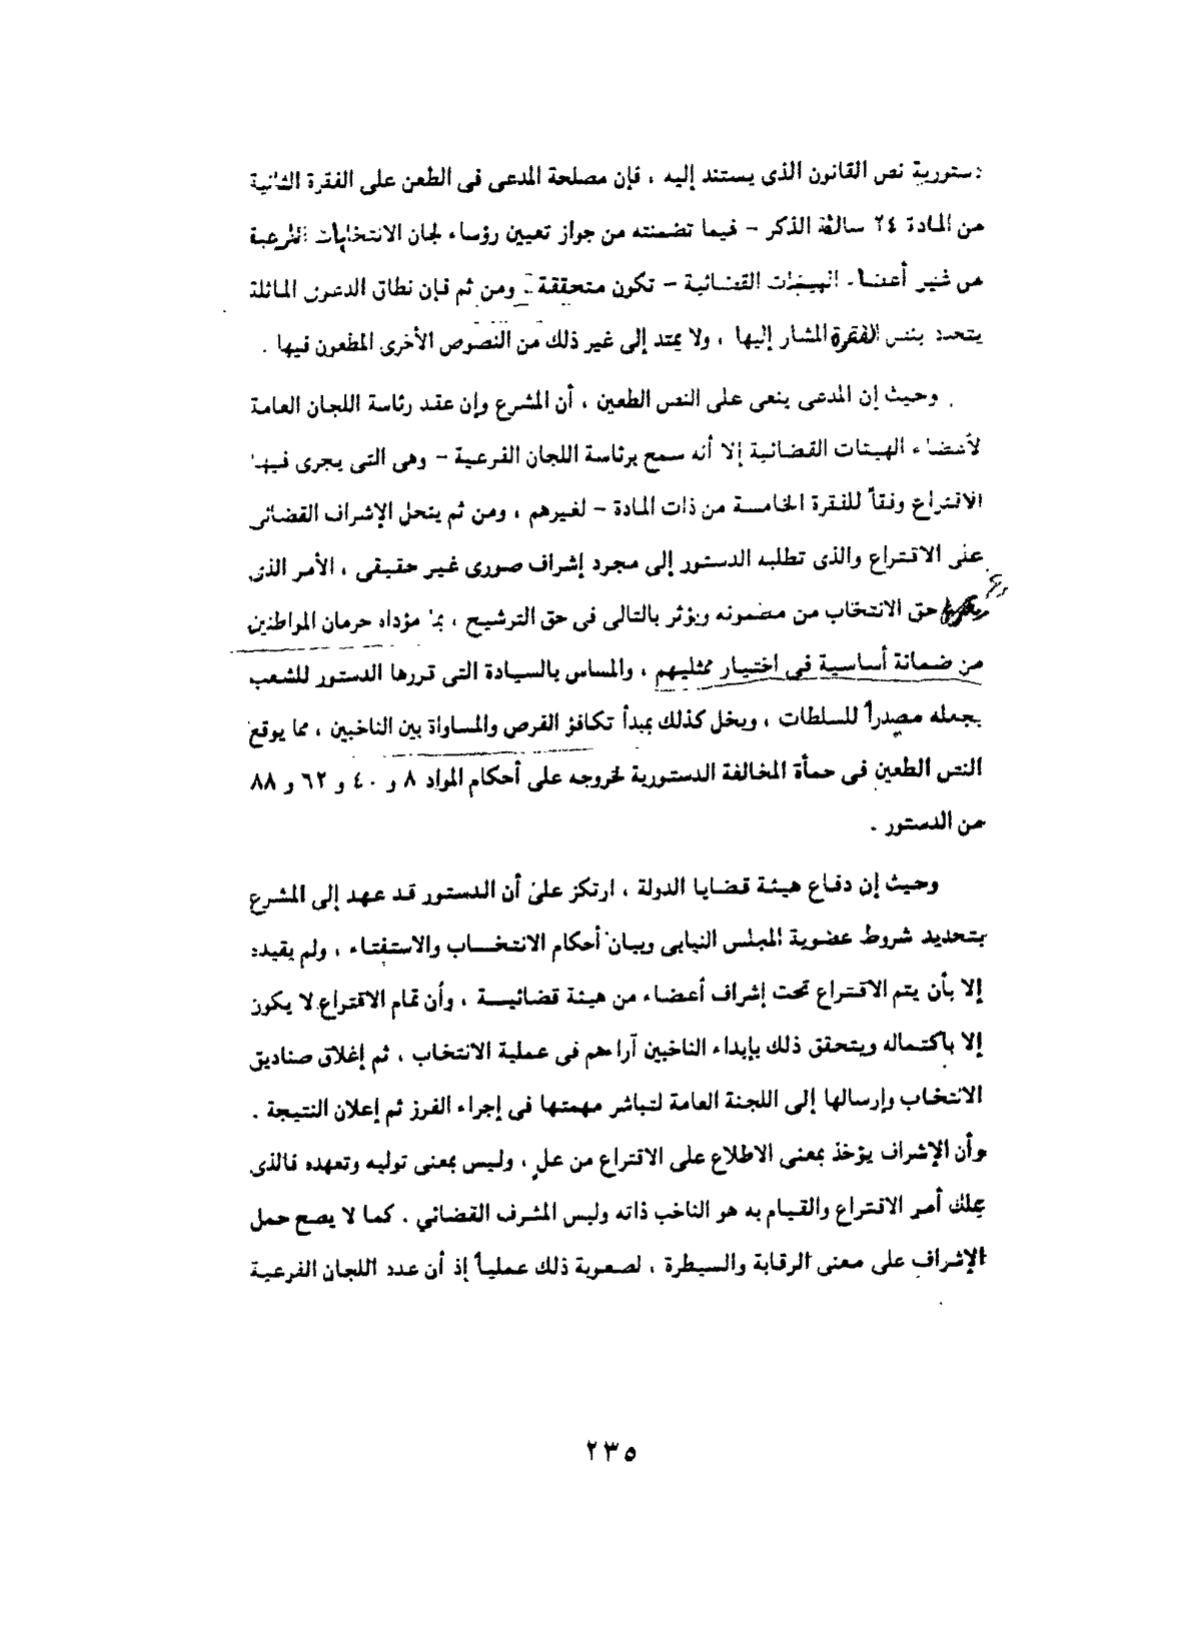 دستورية نص القانون الذى يستند إليه ، فإن مصلحة المدعى فى الطعن على الفقرة الثانية
من المادة ٢٤ سالفة الذكر – فيما تضمنته من جواز تعيين رؤساء لجان الانتخابات الفرعية
من غير أعضاء الهيئات القضائية – تكون متحققة – ومن ثم فإن نطاق الدعوى الماثلة
يتحدد بنص الفقرة المشار إليها ، ولا يمتد إلى غير ذلك من النصوص الأخرى المطعون فيها .
وحيث إن المدعى ينعى على النص الطعين ، أن المشرع وإن عقد رئاسة اللجان العامة
لأعضاء الهيئات القضائية إلا أنه سمح برئاسة اللجان الفرعية – وهى التى يجرى فيها
الاقتراع وفقاً للفقرة الخامسة من ذات المادة – لغيرهم ، ومن ثم يتحل الإشراف القضائى
على الاقتراع والذى تطلبه الدستور إلى مجرد إشراف صورى غير حقيقى ، الأمر الذى
حق الانتخاب من مضمونه ويؤثر بالتالى فى حق الترشيح ، بما مؤداه حرمان المواطنين
من ضمانة أساسية فى اختيار ممثليهم ، والمساس بالسيادة التى قررها الدستور للشعب
بجعله مصدراً للسلطات ، ويخل كذلك بمبدأ تكافؤ الفرص والمساواة بين الناخبين ، مما يوقع
النص الطعين فى حمأة المخالفة الدستورية لخروجه على أحكام المواد ٨ و ٤٠ و ٦٢ و ٨٨
من الدستور .
وحيث إن دفاع هيئة قضايا الدولة ، ارتكز على أن الدستور قد عهد إلى المشرع
بتحديد شروط عضوية المجلس النيابى وبيان أحكام الانتخاب والاستفتاء ، ولم يقيده
إلا بأن يتم الاقتراع تحت إشراف أعضاء من هيئة قضائية ، وأن تمام الاقتراع لا يكون
إلا باكتماله ويتحقق ذلك بإبداء الناخبين آراءهم فى عملية الانتخاب ، ثم إغلاق صناديق
الانتخاب وإرسالها إلى اللجنة العامة لتباشر مهمتها فى إجراء الفرز ثم إعلان النتيجة .
وأن الإشراف يؤخذ بمعنى الاطلاع على الاقتراع من علٍ ، وليس بمعنى توليه وتعهده فالذى
يملك أمر الاقتراع والقيام به هو الناخب ذاته وليس المشرف القضائي . كما لا يصح حمل
الإشراف على معنى الرقابة والسيطرة ، لصعوبة ذلك عملياً إذ أن عدد اللجان الفرعية
٢٣٥